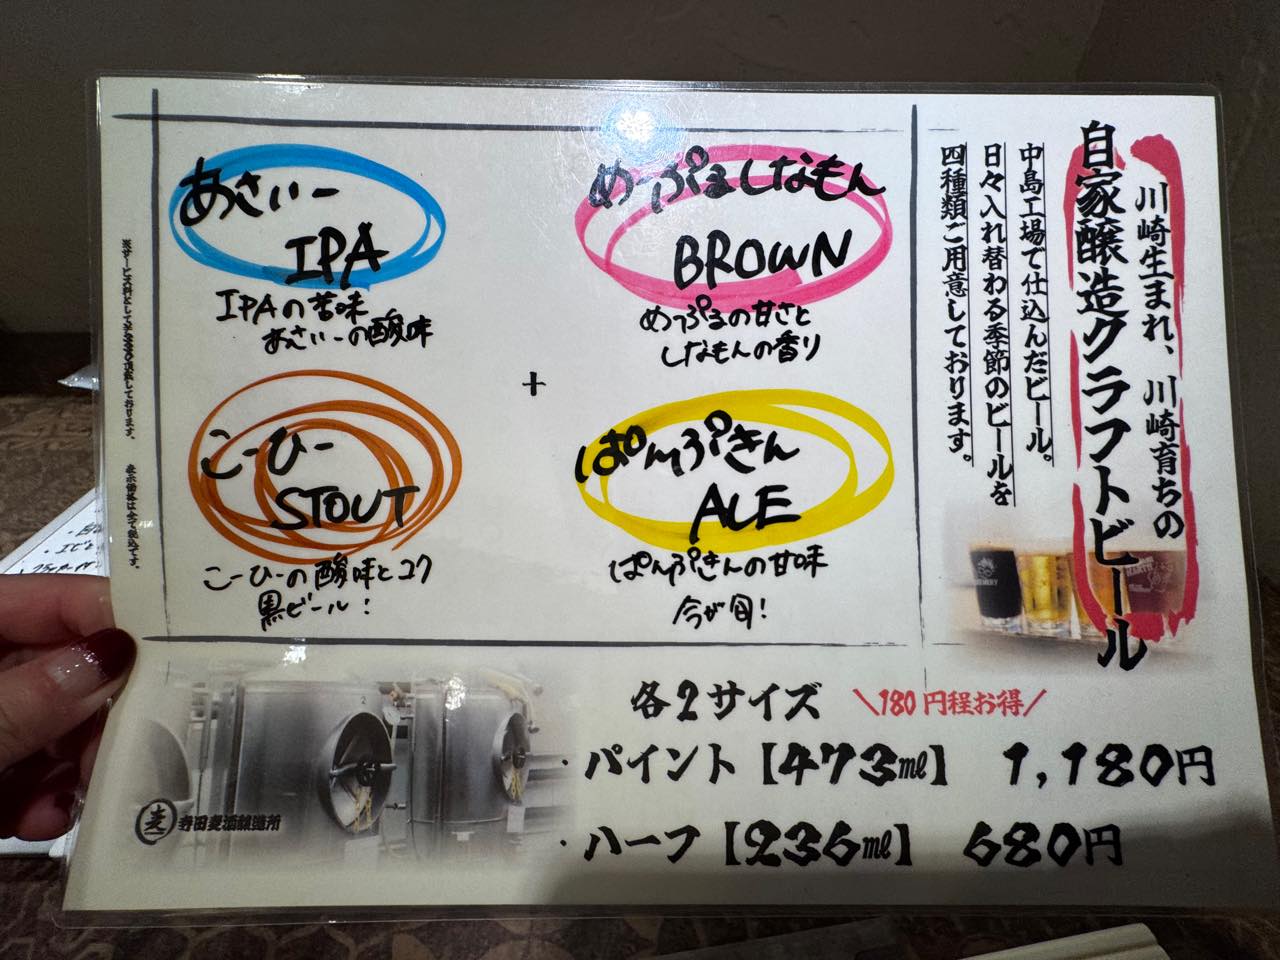 川崎生まれ、川崎育ちの
自家醸造クラフトビール
中島工場で仕込んだビール。
日々入れ替わる季節のビールを
四種類ご用意しております。
めっぷるしなもん
BROWN
めっぷるの甘さと
しなもんの香り
あさいー
IPA
IPAの苦味
あさいーの酸味
+
ぱんぷきん
ALE
ぱんぷきんの甘味
今が旬!
こーひー
STOUT
こーひーの酸味とコク
黒ビール!
各2サイズ \180円程お得/
・パイント【473㎖】 1,180円
・ハーフ【236㎖】 680円
寺田麦酒醸造所
表示価格は全て税込です。